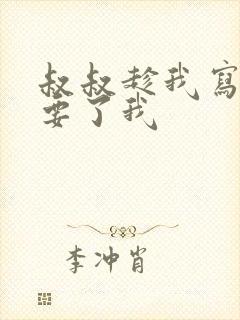 叔叔趁我寫
要了我
李冲肖